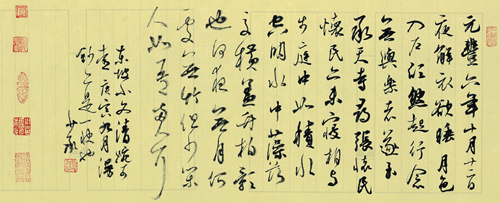 元豐六年十月十二日
夜解衣欲睡月色
入户欣然起行念
無與樂者遂至
承天寺尋張懷民
懷民亦未寢相與
步庭中如積水
空明水中藻荇
交橫蓋竹柏影
也何夜無月何
處無竹柏但少閑
人如吾兩人耳
東坡小文清婉可
庚寅九月漫
鈔亦是一快也